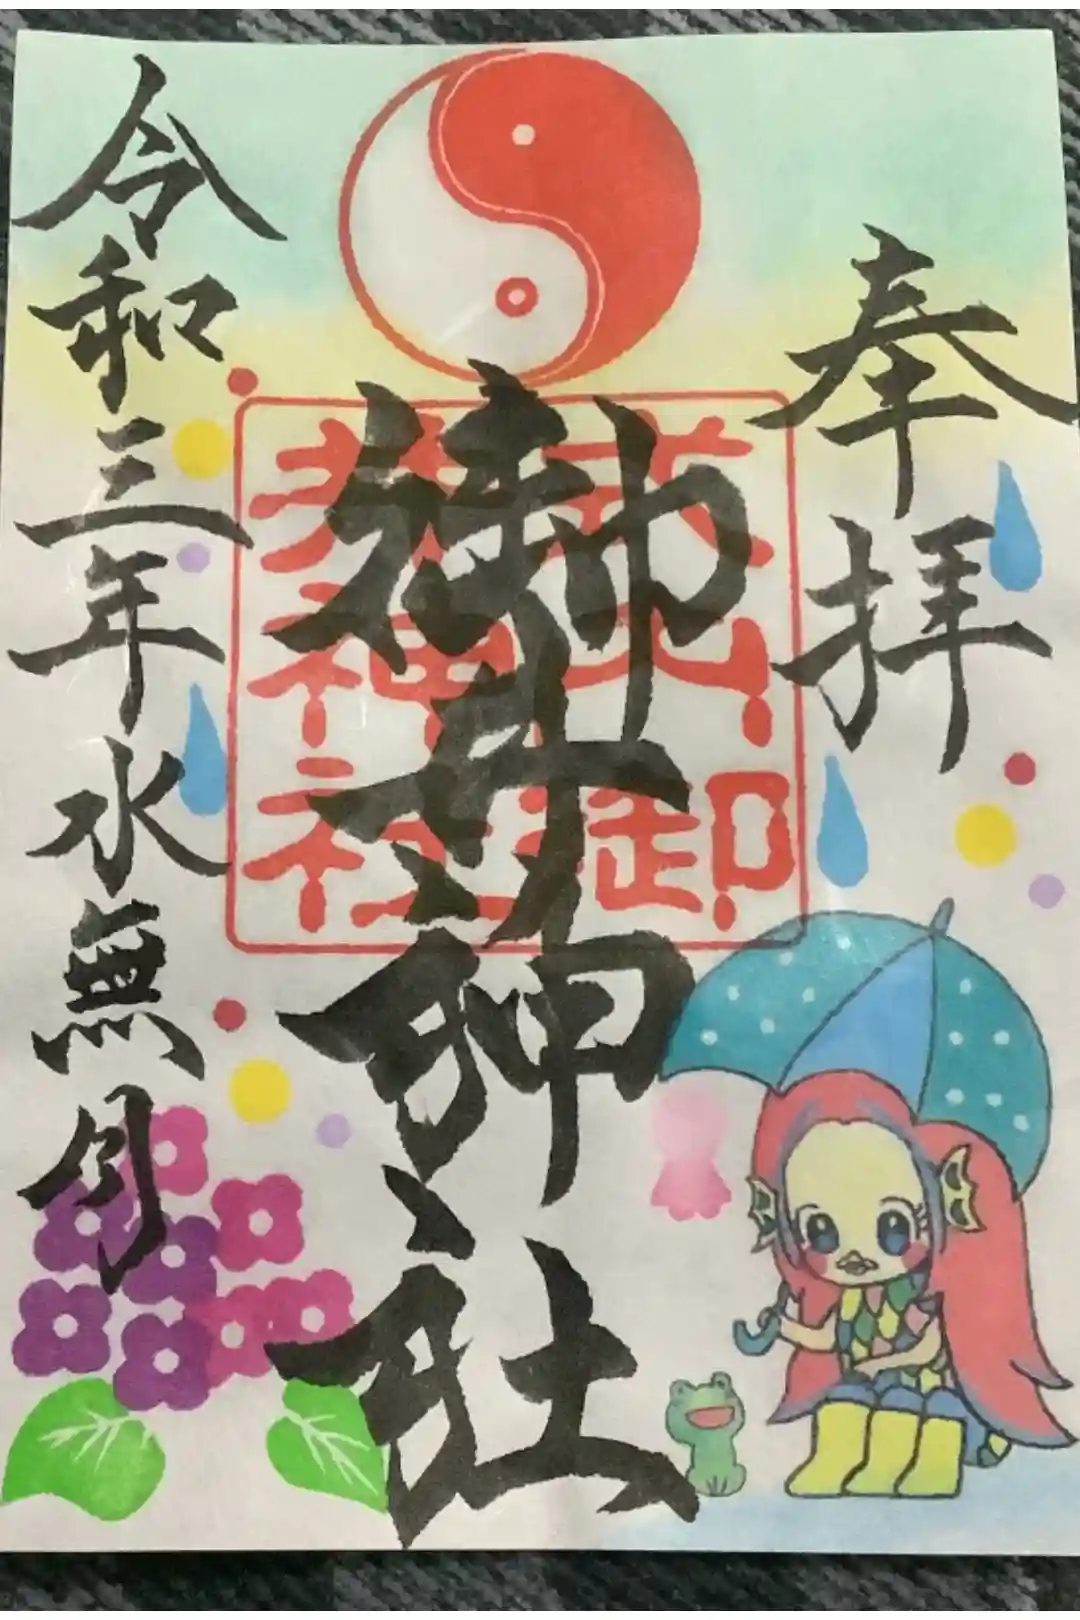 奉拝
御井神社
令和三年水無月